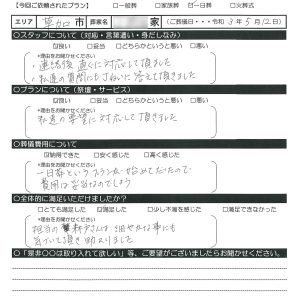 【今回ご依頼されたプラン】 □一般葬 □家族葬 ☑一日葬 □火葬式
エリア 草加市 葬家名 家 (ご葬儀日・・・令和 3年 5月 12日)
○スタッフについて（対応・言葉遣い・身だしなみ）
☑良い □妥当 □どちらかというと悪い □悪い
*理由をお聞かせください
・連絡後直ぐに対応して頂きました
・私達の質問にもていねいに答えて頂きました
○プランについて（祭壇・サービス）
☑良い □妥当 □どちらかというと悪い □悪い
*理由をお聞かせください
私達の希望に対応して頂きました
○葬儀費用について
☑納得できた □安く感じた □高く感じた
*理由をお聞かせください
一日葬というスタイルは始めてだったので
費用は妥当なのでしょう
○全体的に満足いただけましたか？
□とても満足した ☑満足した □少し不満を感じた □満足できなかった
*理由をお聞かせください
担当の さんは細やかな事にも
気づいて頂き助かりました
○「是非○○は取り入れて欲しい」等、ご要望がございましたらお聞かせください。